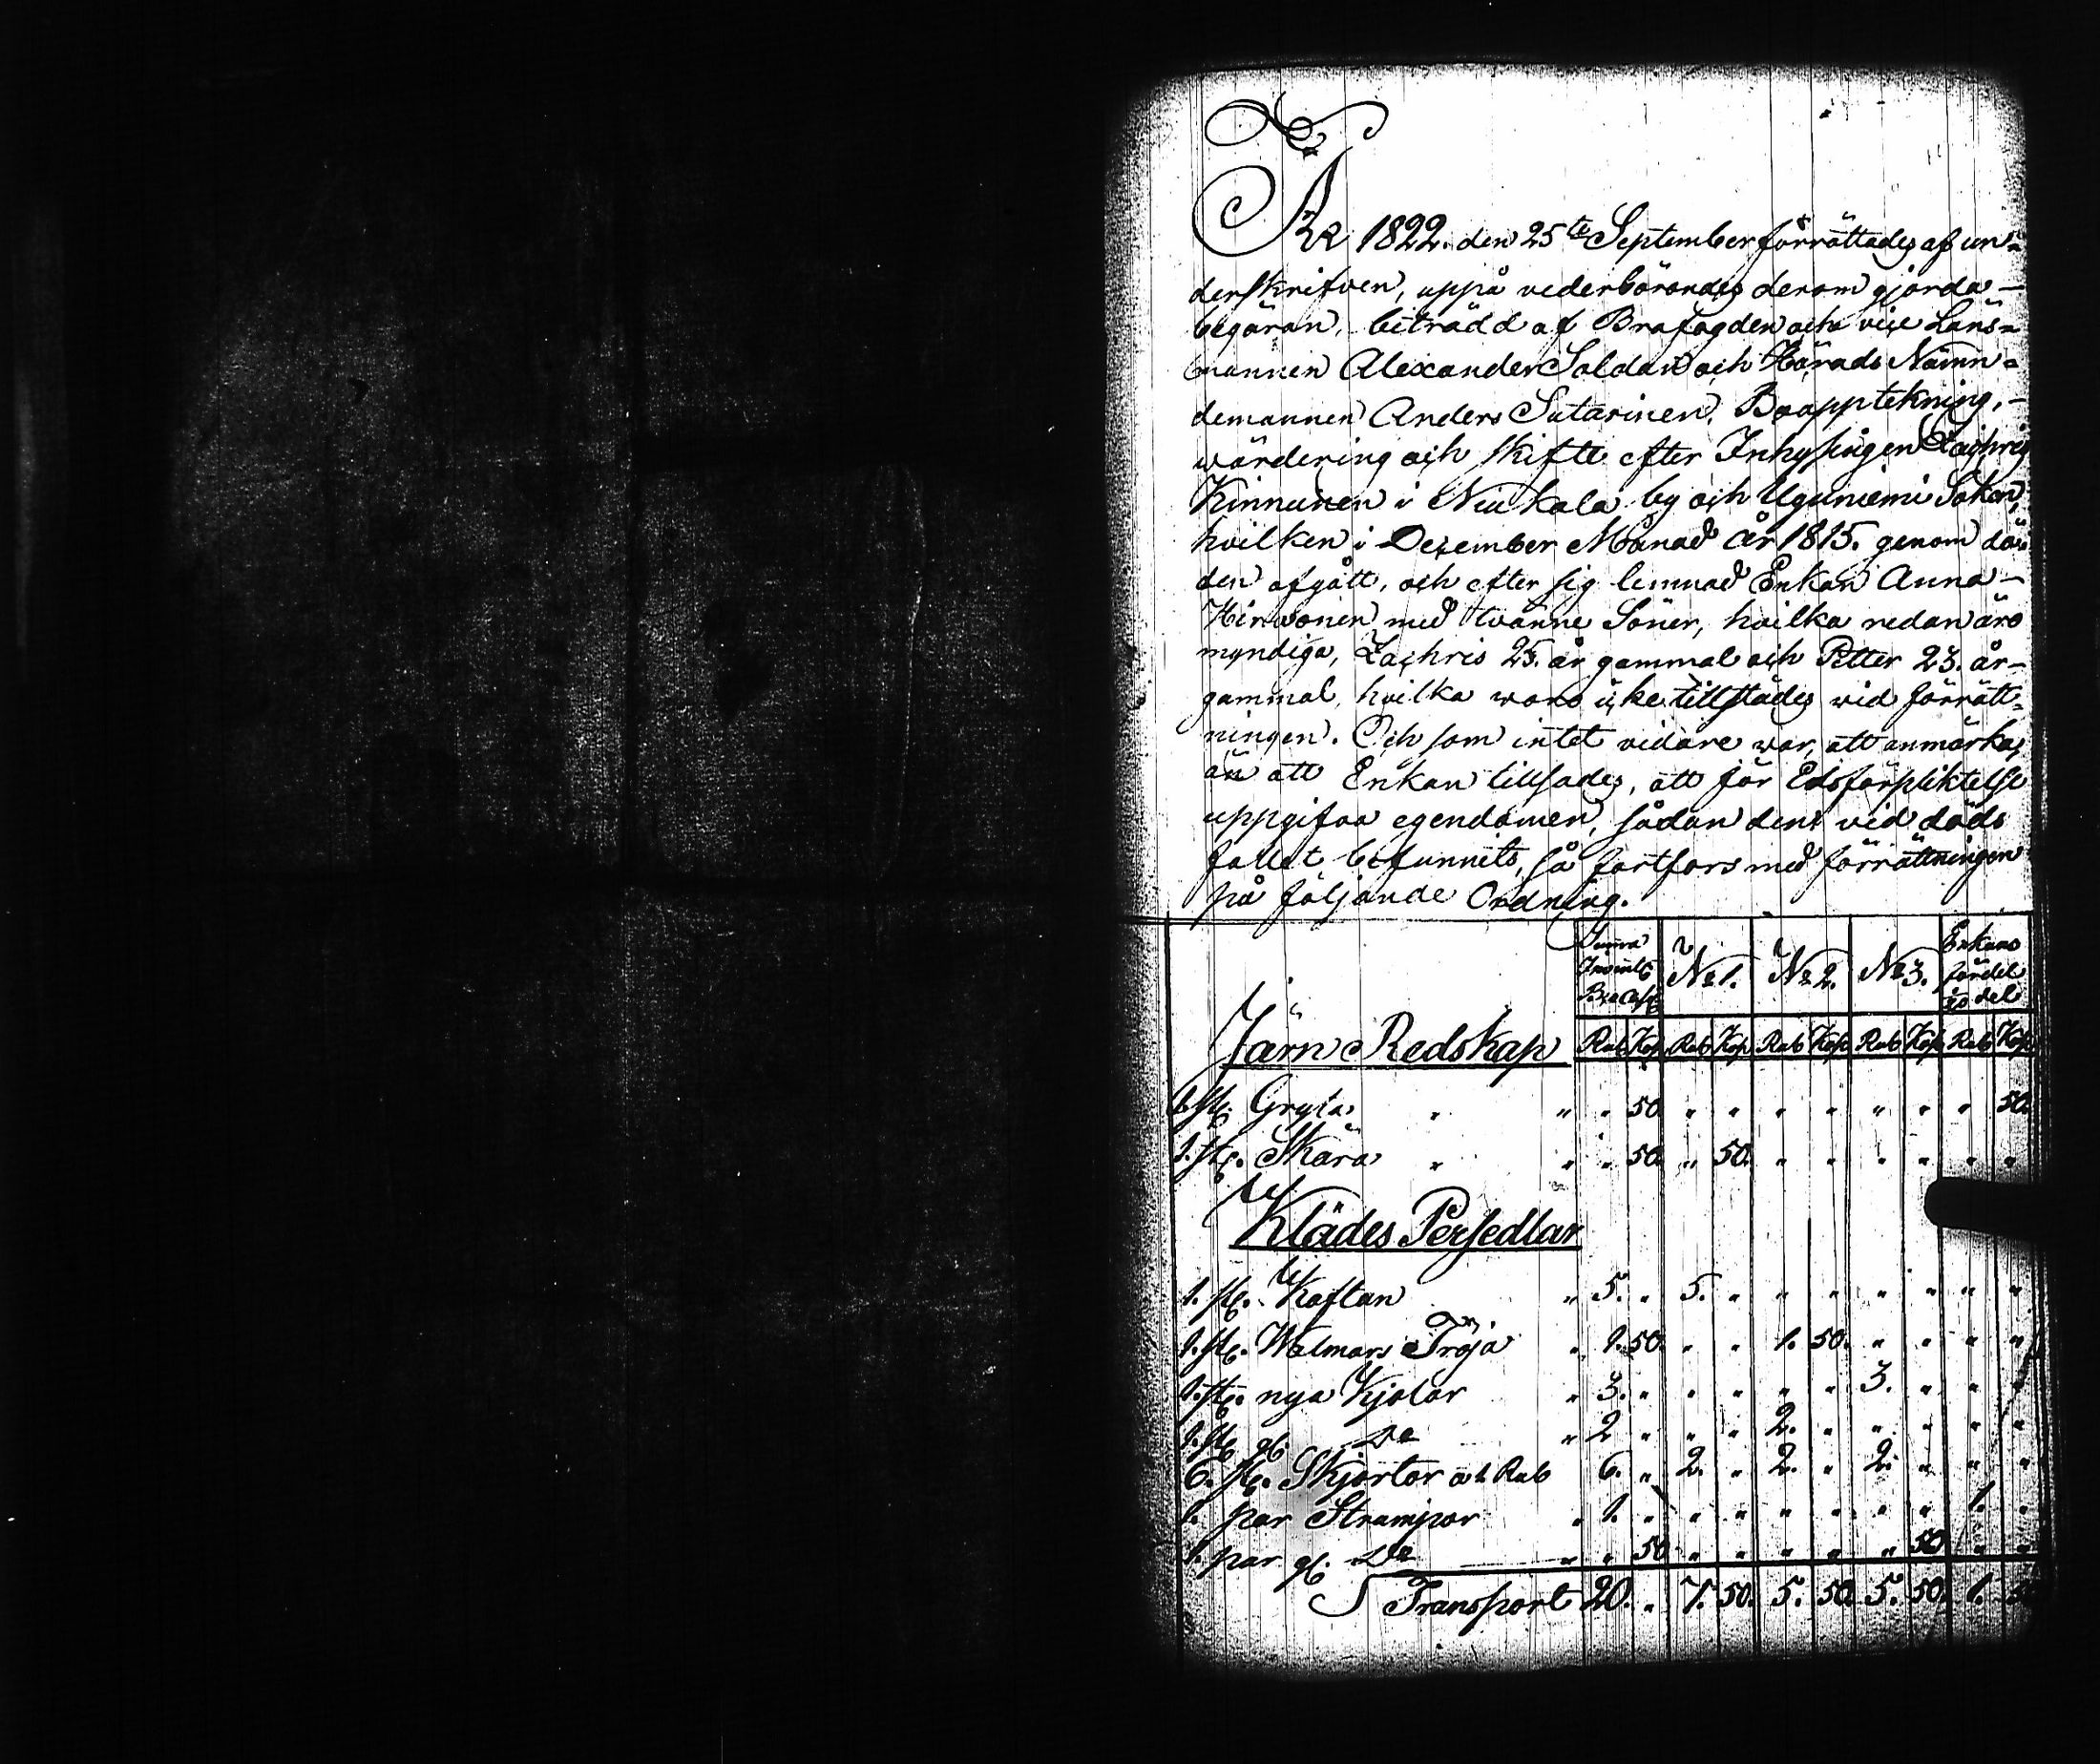 År 1822. den 25te September förrättades af un=
derskrifven, uppå vederbörandes derom gjorda
begäran, biträdd af Brofogden och vice Läns=
mannen Alexander Soldan och Härads Nämn=
demannen Anders Sutarinen, Bouppteckning,
wärdering och skifte efter Inhysingen Zachris
Kinnunen i Niukala by och Uguniemi Soken,
hvilken i December Månad år 1815. genom dö=
den afgått, och efter sig lemnad Enkan Anna
Hirwonen med tvänne Söner, hvilka redan äro
myndiga, Zachris 25. år gammal och Petter 23. år
gammal, hvilka woro icke tillstädes vid förrätt=
ningen. Och som intet vidare war, att anmärka,
än att Enkan tillsades, att för Edsförpliktelse
uppgifva egendomen, sådan den vid döds
fallet befunnits, så fortfors med förrättningen
på följande Ordning.
Summa No 1. No 2. No 3. Enkans fördel
Järn Redskap Rub Kop Rub Kop Rub Kop Rub Kop Rub Kop
1. st. Gryta " " 50 " " " " " " " 50.
1. st. Skära " " 50. " 50. " " " " " "
Klädes Persedlar
1. st. Kaftan " 5. " 5. " " " " " " "
1. st. Walmars Tröja " 1. 50. " " 1. 50. " " " "
1. st. nya Kjolar " 3. " " " " " 3. " " "
1. st. gl. Do " 2 " " " 2. " " " " "
6. st. Skjortor a 1 Rub 6. " 2. " 2. " 2. " " "
1. par Strumpor " 1. " " " " " " " 1. "
1. par gl. Do " " 50 " " " " " 50 " "
Transport 20. " 7. 50. 5. 50. 5. 50. 1. 50